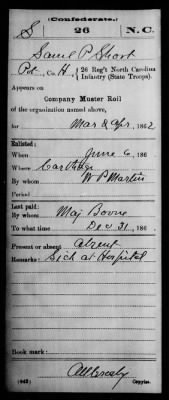 (Confederate.)
S 26 N.C.
Saml P Short
Pvt, Co. H, 26 Reg't North Carolina
Infantry (State Troops).
Appears on
Company Muster Roll
of the organization named above,
for Mar & Apr, 1862
Enlisted:
When June 6, 186
Where Carthage
By whom W P Martin
Period
Last paid:
By whom Maj Boone
To what time Dec 31, 186
Present or absent Absent
Remarks: Sick at Hospital
Book mark:
(642) Copyist.